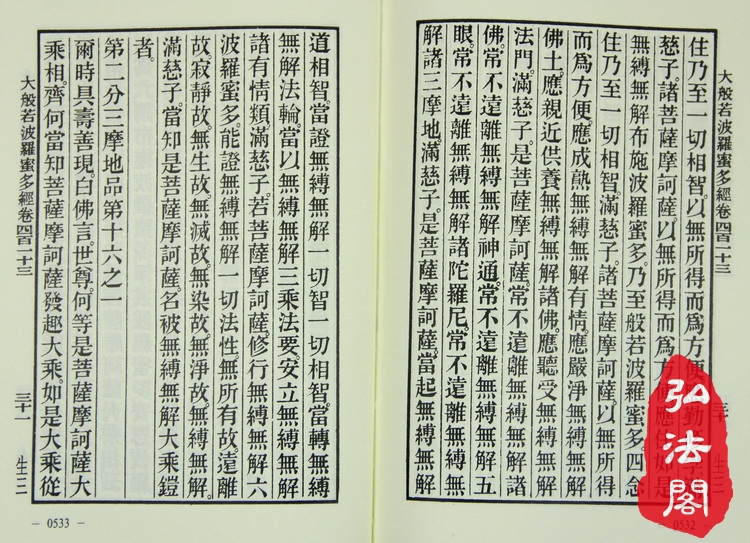 大般若波羅蜜多經卷四百一十三 三十 生三
住乃至一切相智。以無所得而爲方便。勤
慈子。諸菩薩摩訶薩。以無所得而爲方便。應住如是
無縛無解布施波羅蜜多。乃至般若波羅蜜多。四念
住乃至一切相智。滿慈子。諸菩薩摩訶薩。以無所得
而爲方便。應成熟無縛無解有情。應嚴淨無縛無解
佛土。應親近供養無縛無解諸佛。應聽受無縛無解
法門。滿慈子。是菩薩摩訶薩。常不遠離無縛無解諸
佛。常不遠離無縛無解神通。常不遠離無縛無解五
眼。常不遠離無縛無解諸陀羅尼。常不遠離無縛無
解諸三摩地。滿慈子。是菩薩摩訶薩。當起無縛無解
- 0532 -
道相智。當證無縛無解一切智一切相智。當轉無縛
無解法輪。當以無縛無解三乘法要。安立無縛無解
諸有情類。滿慈子。若菩薩摩訶薩。修行無縛無解六
波羅蜜多。能證無縛無解一切法性。無所有故。遠離
故。寂靜故。無生故。無滅故。無染故。無淨故。無縛無解。
滿慈子。當知是菩薩摩訶薩。名被無縛無解大乘鎧
者。
第二分三摩地品第十六之一
爾時具壽善現。白佛言。世尊。何等是菩薩摩訶薩大
乘相。齊何當知菩薩摩訶薩發趣大乘。如是大乘從
大般若波羅蜜多經卷四百一十三 三十一 生三
- 0533 -
弘法閣